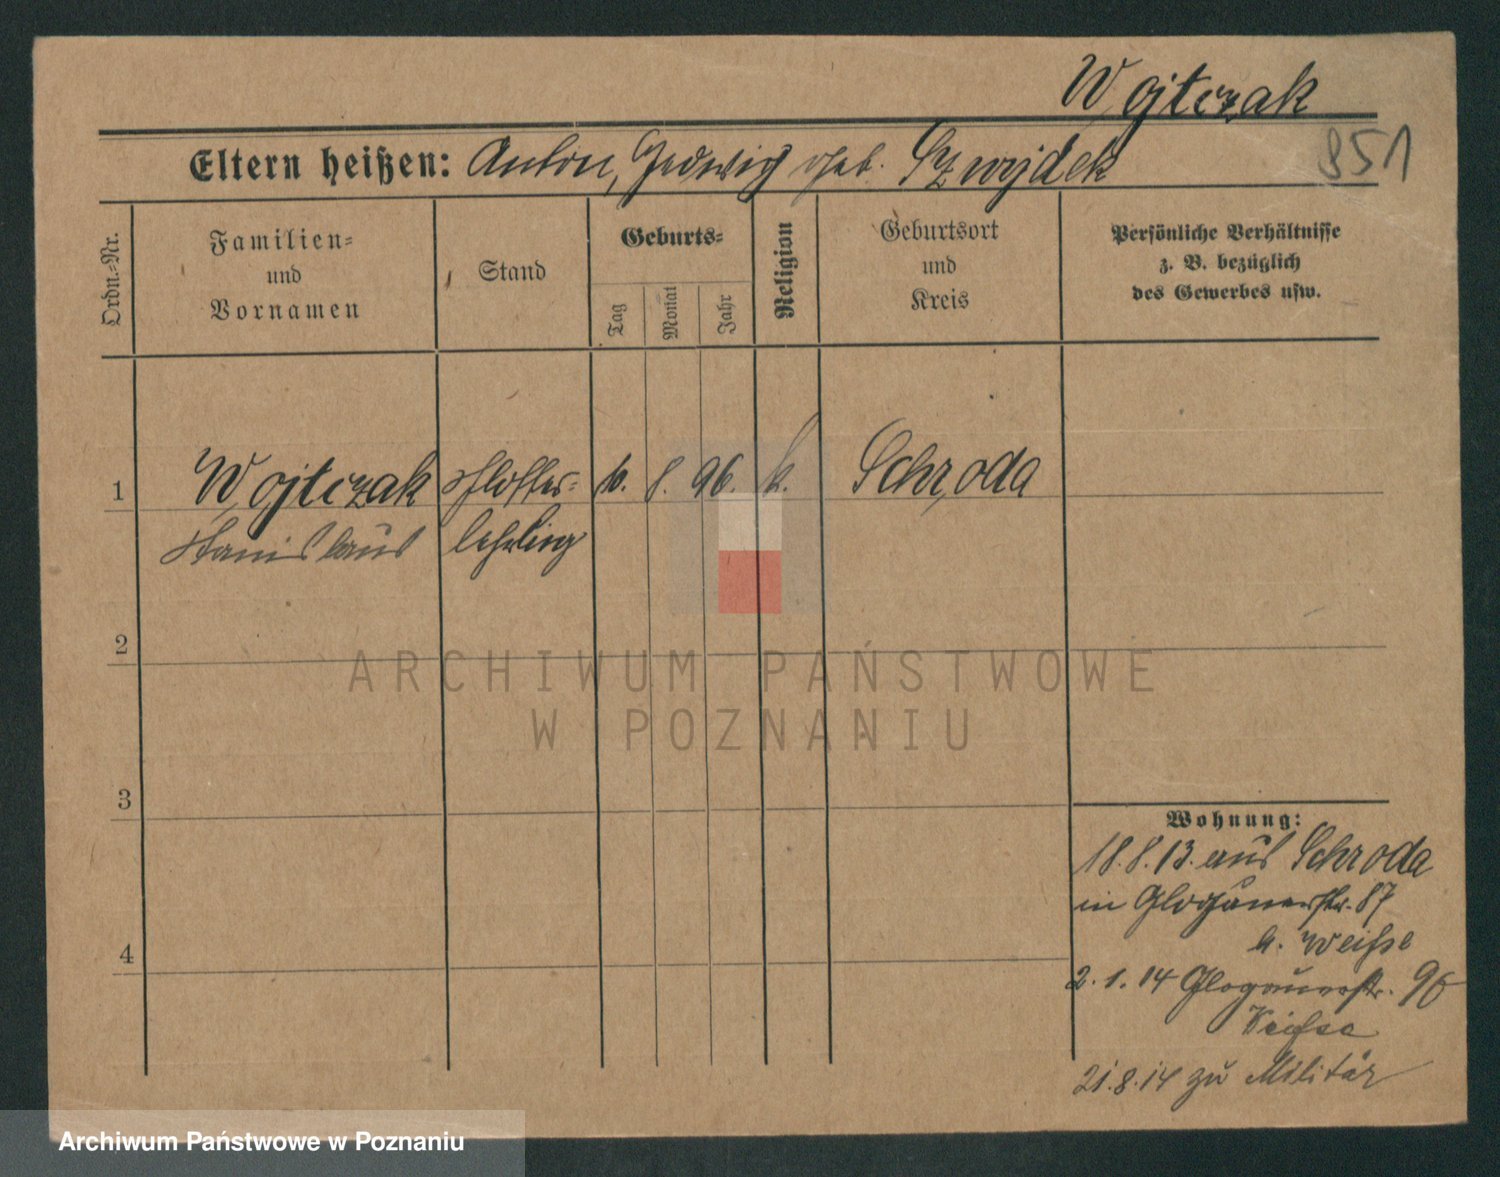 Wojtczak
851
Eltern heißen: Anton, Hedwig geb. Szwojdek
Ordn.-Nr.
Familien-
und
Vornamen
Stand
Geburts-
Tag
Monat
Jahr
Religion
Geburtsort
und
Kreis
Persönliche Verhältnisse
z. B. bezüglich
des Gewerbes usw.
1 Wojtczak Schlosser- 8. 96. k. Schroda
Stanislaus lehrling
2
ARCHIWUM PAŃSTWOWE
W POZNANIU
3
Wohnung:
18.8.13. aus Schroda
in Glogauerstr. 87
b. Weisse
2.1.14 Glogauerstr. 96
4
21.8.14 zu Militär
Archiwum Państwowe w Poznaniu